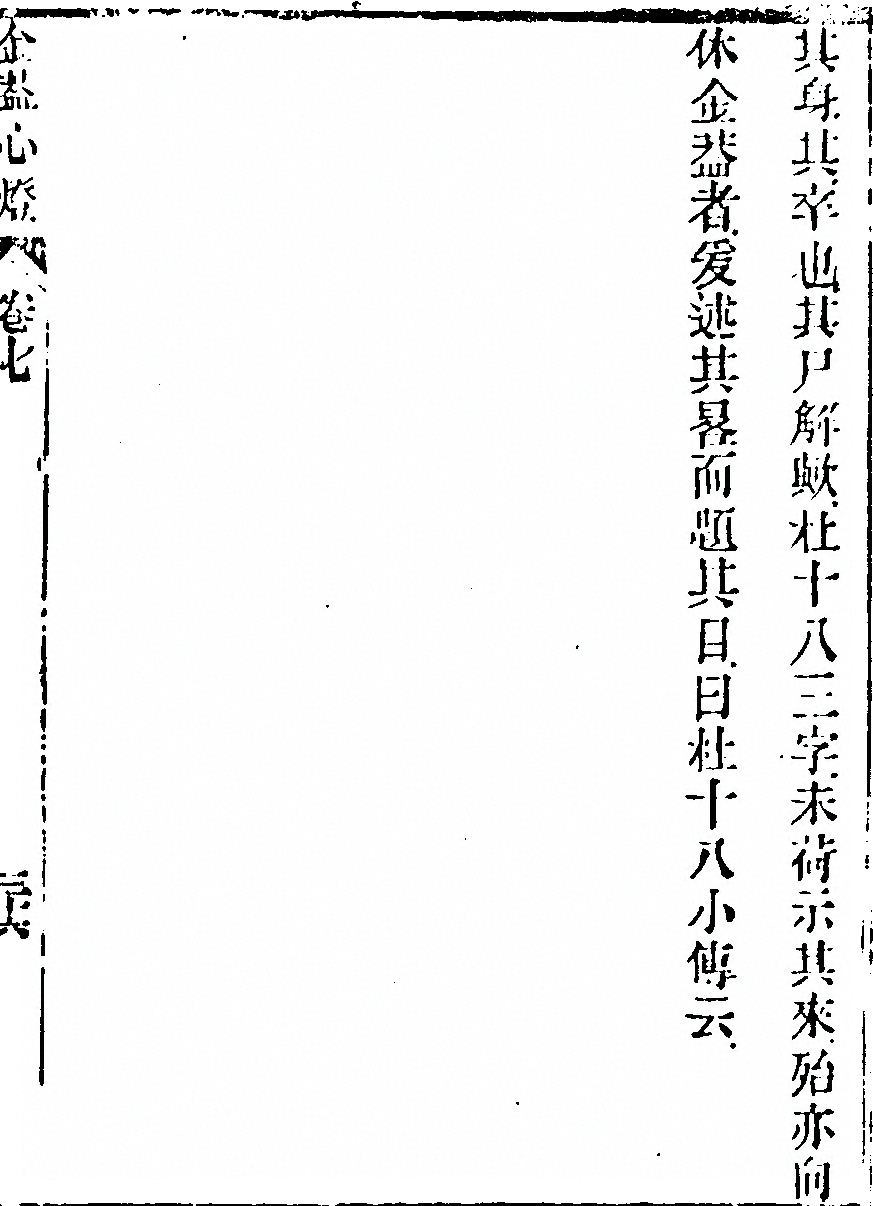 其身其卒也其尸解歟杜十八三字未荷示其來殆亦向
休金葢者爰述其畧而題其目曰杜十八小傳云
金葢心燈 卷七 三六